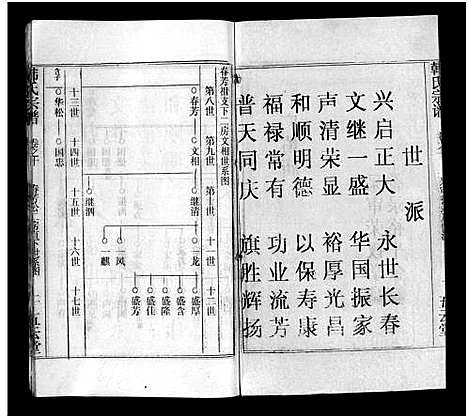 韩氏宗谱
世派
兴启正大 永世长春
文继一盛 华国振家
声清荣显 裕厚光昌
和顺明德 以保寿康
福禄常有 功业流芳
普天同庆 旗胜辉扬
春芳祖支下二房文相世系图
第八世
第九世
第十世
十一世
十二世
春芳
文相
继清
一龙
盛厚
盛含
盛隆
盛佳
盛芳
一凤
一麒
继泗
十三世
十四世
十五世
十六世
十七世
国忠
华松
韩氏宗谱